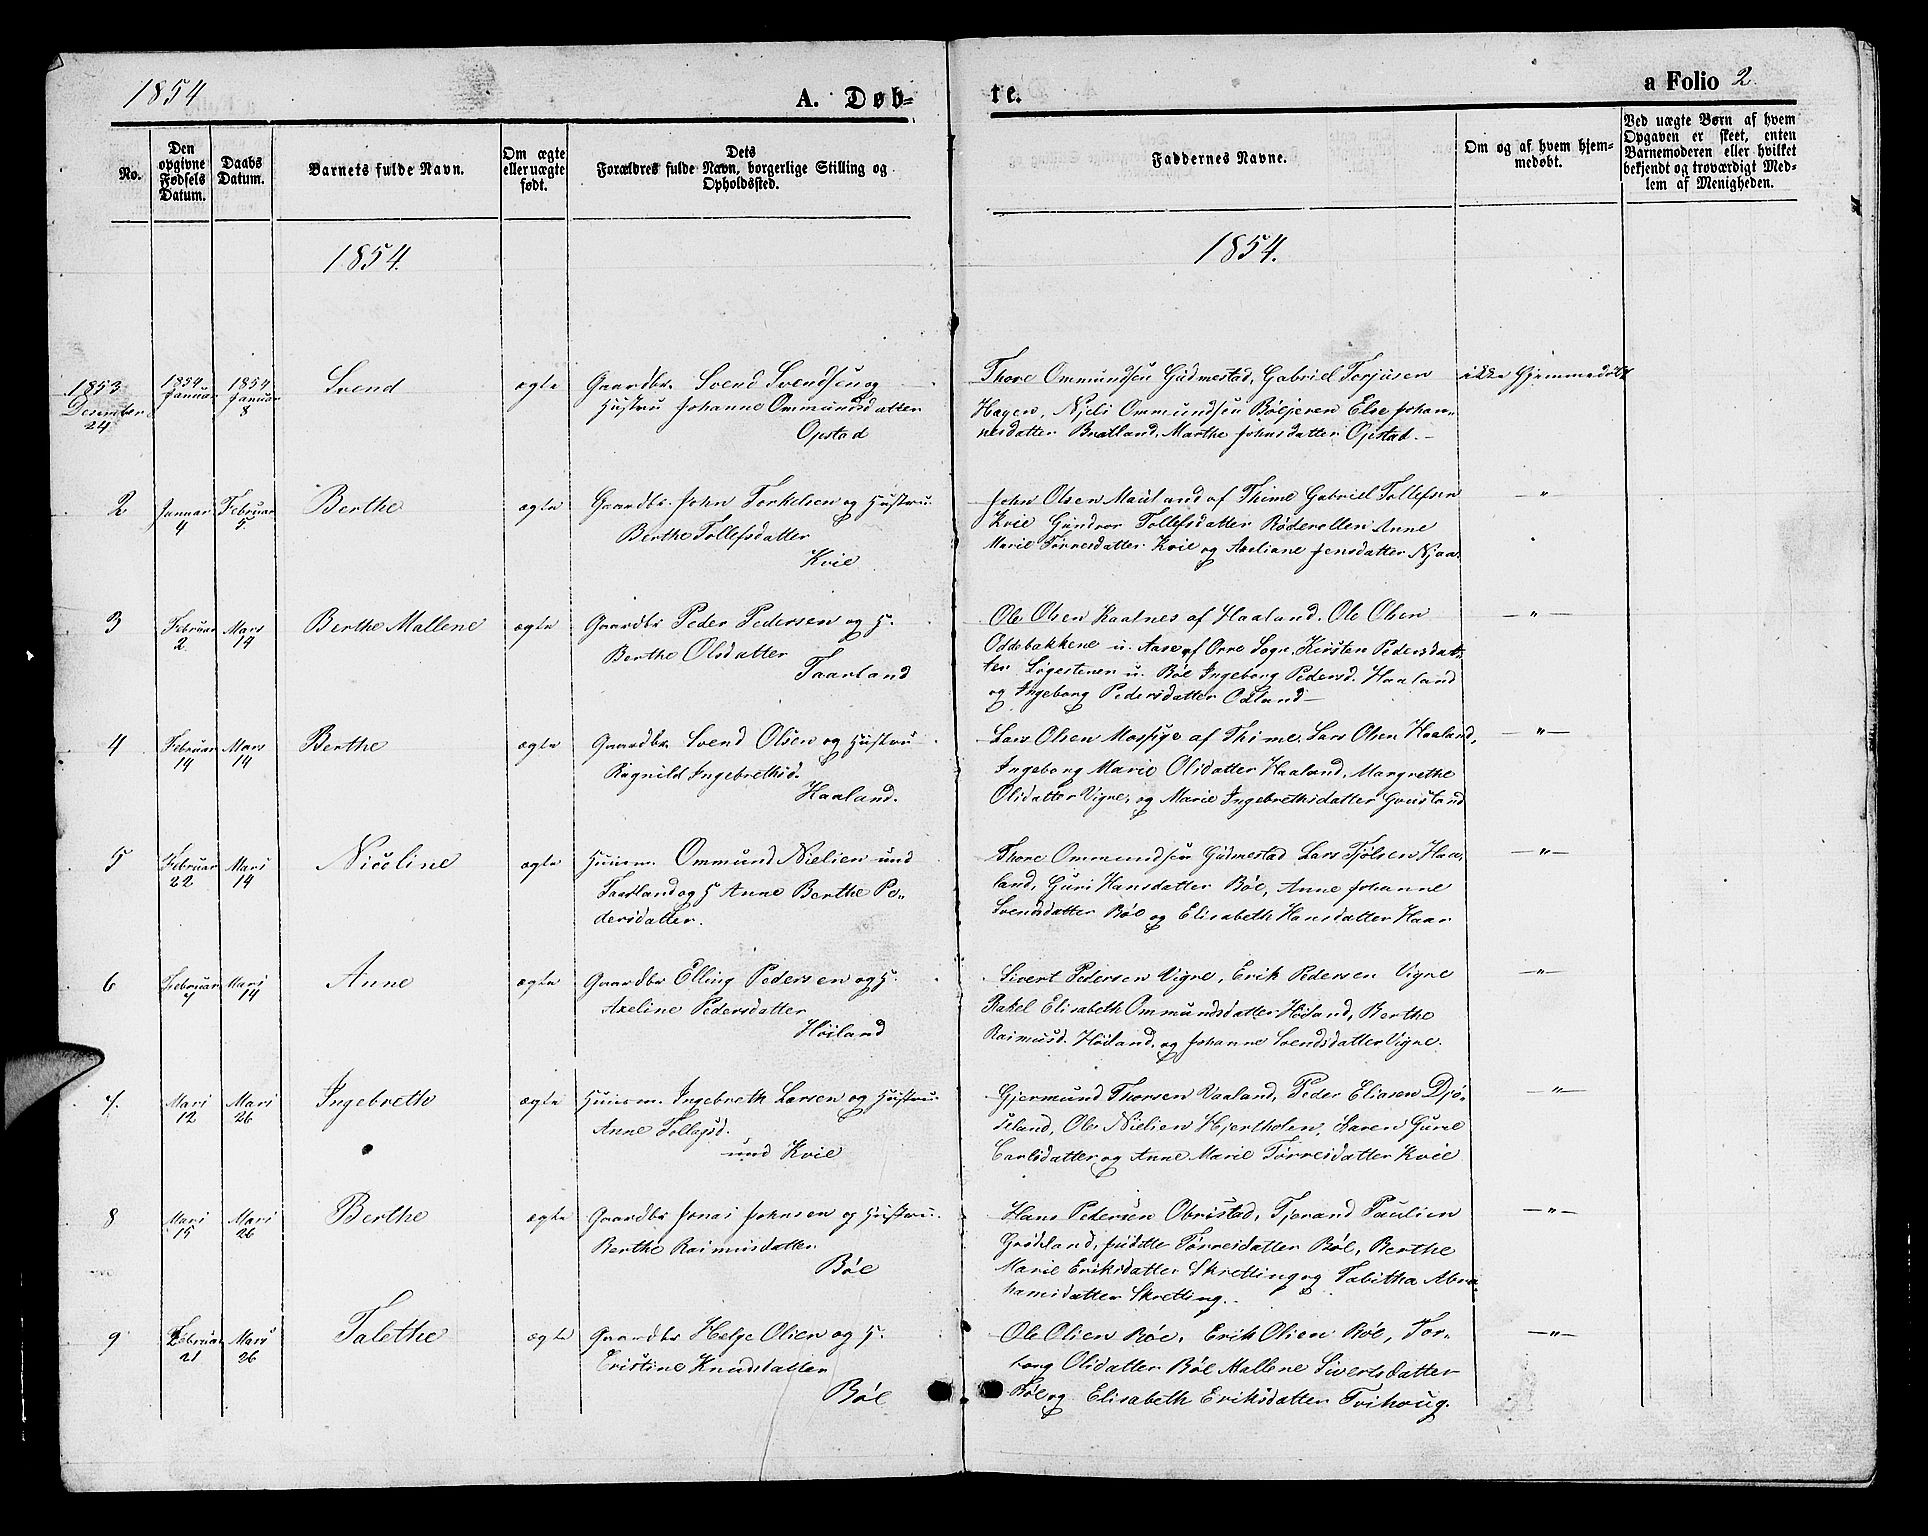 1854
A. Døb-
te.
a Folio 2.
No.
Den opgivne Fødsels Datum.
Daabs Datum.
Barnets fulde Navn.
Om ægte eller uægte født.
Dets Forældres fulde Navn, borgerlige Stilling og Opholdssted.
Faddernes Navne.
Om og af hvem hjemmedøbt.
Ved uægte Børn af hvem Opgaven er skeet, enten Barnemoderen eller hvilket bekjendt og troværdigt Medlem af Menigheden.
1854.
1854.
1853 Desember 24
1854 Januar
1854 Januar 8
Svend
ægte
Gaardbr. Svend Svendsen og
Hustru Johanne Ommundsdatter
Opstad
Thore Ommundsen Gudmestad, Gabriel Torjusen
Hagen, Njeli Ommundsen Bøljeren Else Johan-
nesdatter Bratland, Marthe Johnsdatter Opstad.
ikke hjemmedøbt
2
Januar 4
Februar 5
Berthe
ægte
Gaardbr. John Torkelsen og Hustru
Berthe Tollefsdatter
Kvie
John Olsen Mauland af Thime Gabriel Tollefsen
Kvie Gundvor Tollefsdatter Røderollen Anne
Marie Tørresdatter Kvie og Axeliane Jensdatter Njaa.
"
3
Februar 2
Mars 14
Berthe Mallene
ægte
Gaardbr Peder Pedersen og H.
Berthe Olsdatter
Taarland
Ole Olsen Kaatnes af Haaland. Ole Olsen
Oddebakkene u. Aase af Orre Sogn, Kirsten Pedersdat-
ter u. Bøe Ingeborg Pedersd. Haaland
og Ingeborg Pedersdatter
"
4
Februar 14
Mars 14
Berthe
ægte
Gaardbr. Svend Olsen og Hustru
Ragnild Ingebrethsd.
Haaland.
Lars Olsen Mossige af Thime. Lars Olsen Haaland,
Ingeborg Marie Olsdatter Haaland, Margrethe
Olsdatter Vigre, og Marie Ingebrethsdatter
"
5
Februar 22
Mars 14
Nicoline
ægte
Huusm. Ommund Nielsen und
og H Anne Berthe Pe-
dersdatter.
Thore Ommundsen Gudmestad Lars Tjølsen Haa-
land, Guri Hansdatter Bøe, Anne Johanne
Svendsdatter Bøe og Elisabeth Hansdatter Haar
"
6
Februar 7
Mars 14
Anne
ægte
Gaardbr Elling Pedersen og H.
Axeline Pedersdatter
Høiland
Sivert Pedersen Vigre, Erik Pedersen Vigre
Rakel Elisabeth Ommundsdatter Høiland, Berthe
Rasmusd. Høiland, og Johanne Svendsdatter Vigre.
"
7.
Mars 12
Mars 26
Ingebreth
ægte
Huusm. Ingebreth Larsen og Hustru
Anne Tollefsd.
und Kvie
Gjermund Thorsen Vaaland, Peder Eliasen Djø-
seland, Ole Nielsen Hjertholen, Karen Gurie
Carlsdatter og Anne Marie Tørresdatter Kvie
"
8
Mars 15
Mars 26
Berthe
ægte
Gaardbr Jonas Johnsen og Hustru
Berthe Rasmusdatter
Bøe
Hans Pedersen Obrestad, Tjerand Paulsen
Grødeland, Judithe Tørresdatter Bøe, Berthe
Marie Eriksdatter Skretting og Tabitha Abra-
hamsdatter Skretting.
"
9
Februar 21
Mars 26
Talethe
ægte
Gaardbr Helge Olsen og H.
Cristine Knudsdatter
Bøe
Ole Olsen Bøe, Erik Olsen Bøe, Tor-
borg Olsdatter Bøe Mallene Sivertsdatter
Bøe og Elisabeth Eriksdatter Tvihoug.
"